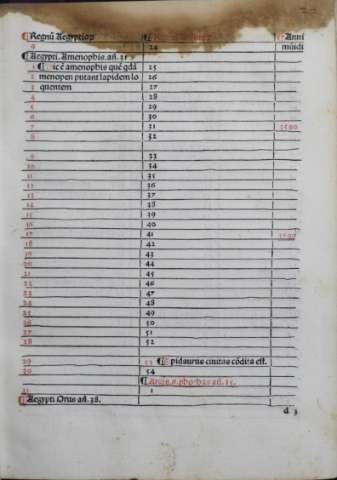 Regnū Aegyptioꝝ Anni
9 24 mūdi
Aegypti. Amenophis. añ. 31
1 Hic ē amenophis quē qdā 25
2 menopen putant lapidem lo 26
3 quentem 27
4 28
5 29
6 30
7 31
8 32
9 33
10 34
11 35
12 36
13 37
14 38
15 39
16 40
17 41
18 42
19 43
20 44
21 45
22 46
23 47
24 48
25 49
26 50
27 51
28 52
29 53 Epidaurus ciuitas cōdita est.
30 54
añ. 35.
31 1
Aegypti Orus añ. 38.
d 3